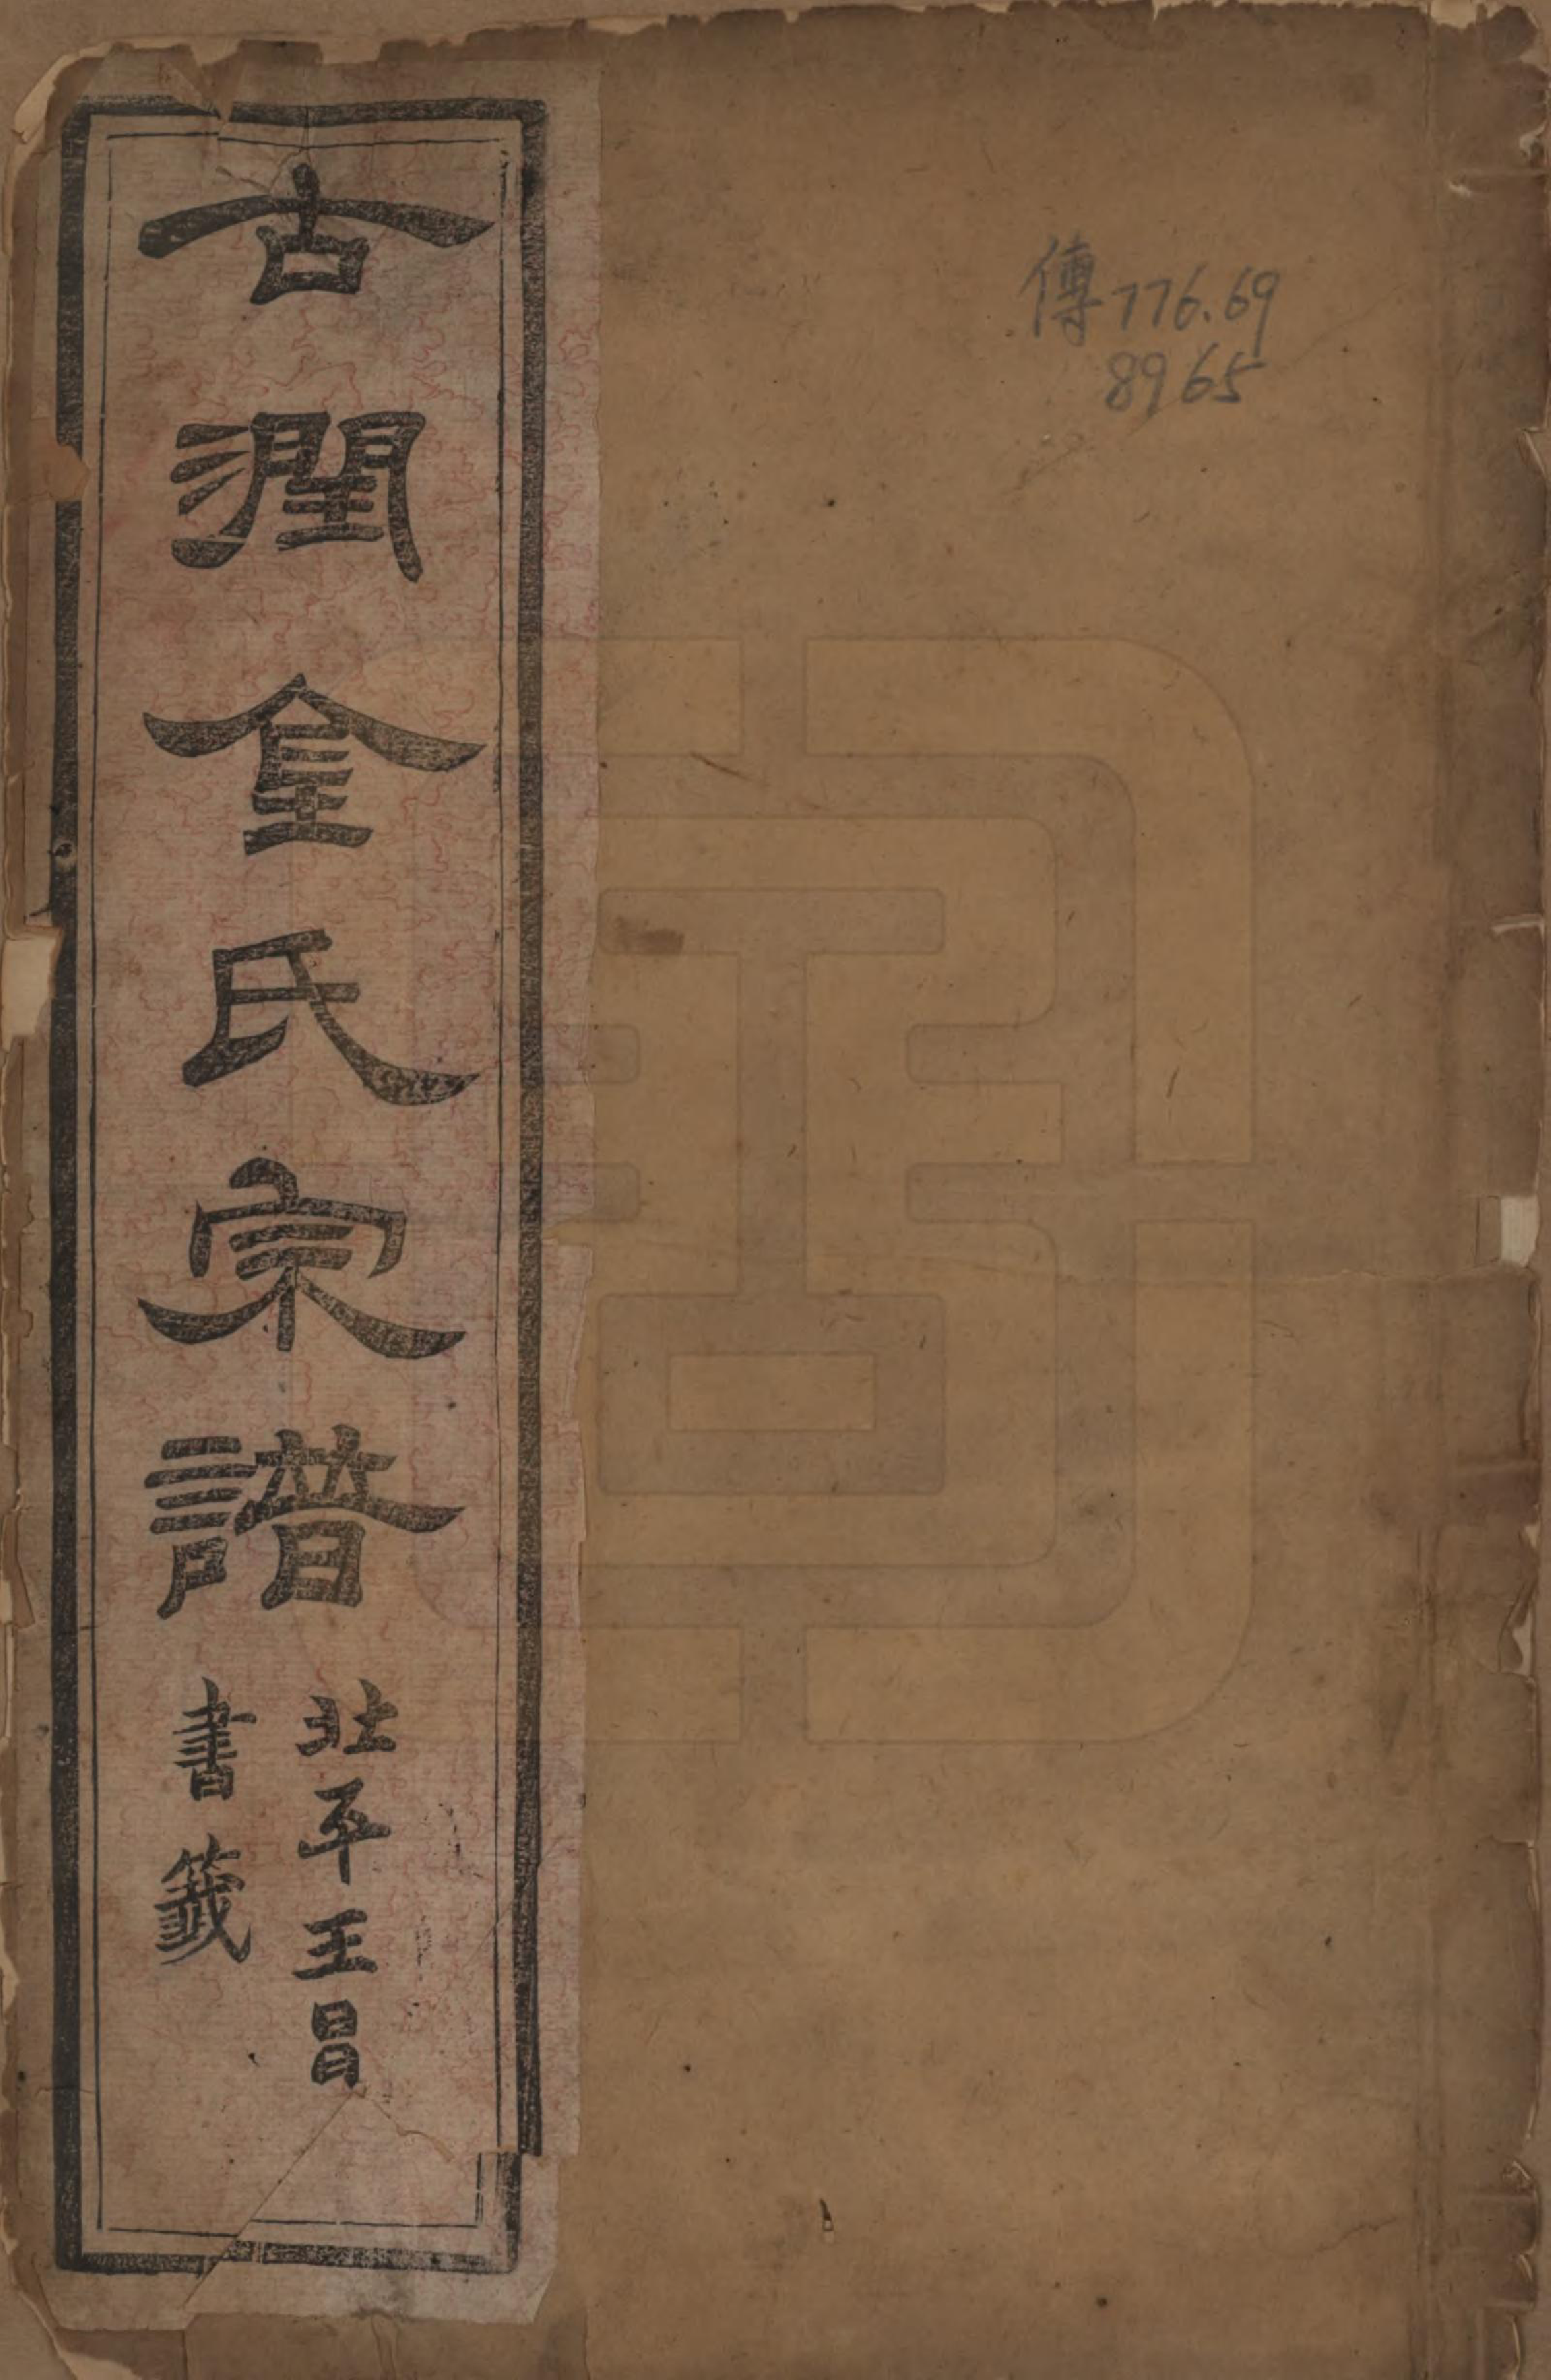 傳776.69
8965
古潤金氏宗譜
北平王冒
書籤